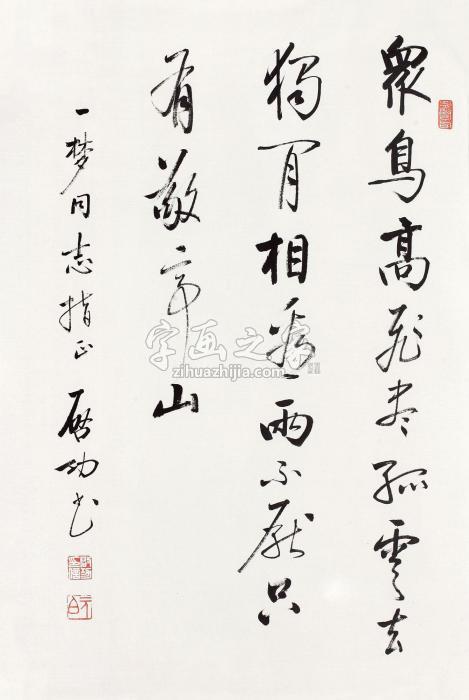 眾鳥高飛尽孤雲去
獨閒相看兩不厭只
有敬亭山
一梦同志指正
啟功书
元白
字画之家
zihuazhijia.com